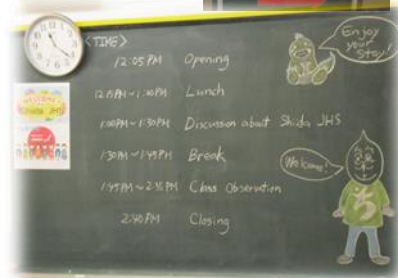 <TIME>
12:05 PM Opening
12:15PM~1:00PM Lunch
1:00PM~1:30PM Discussion about Shida JHS
1:30PM~1:45PM Break
1:45PM~2:35PM Class Observation
2:40PM Closing
Enjoy
your
Stay!
Welcome!
WELCOME